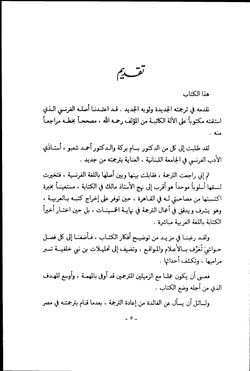 تقديم
هذا الكتاب
نقدمه في ترجمته الجديدة وثوبه الجديد . قد اعتمدنا أصله الفرنسي الذي
استلمته مكتوباً على الآلة الكاتبة من المؤلف رحمه الله ، مصححاً بخطه مراجعاً
منه .
لقد طلبت إلى كل من الدكتور بسام بركة والدكتور أحمد شعبو ، أستاذي
الأدب الفرنسي في الجامعة اللبنانية ، العناية بترجمته من جديد .
ثم إني راجعت الترجمة ، فقابلت بينها وبين أصلها باللغة الفرنسية ، فتخيرت
لنسقها أسلوباً موحداً هو أقرب إلى نهج الأستاذ مالك في الكتابة ، مستعيناً بخبرة
اكتسبتها من مصاحبتي له في القاهرة ، حين توفر على إخراج كتبه بالعربية ،
وهو يشرف ويدقق في أعمال الترجمة في نهاية الخمسينات ، بل حين اختار أخيراً
الكتابة باللغة العربية مباشرة .
ولقد رغبنا في مزيد من توضيح أفكار الكتاب ، فأضفنا إلى كل فصل
حواشي تُعرِّف بالأعلام والمواقع ، وتضيف إلى تحليلات بن نبي خلفية تسبر
مراميها ، وتكشف أحداثها .
فعسى أن يكون عملنا مع الزميلين المترجمين قد أوفى بالمهمة ، وأوسع للهدف
الذي من أجله وضع الكتاب .
ولسائل أن يسأل عن الفائدة من إعادة الترجمة ، بعدما قام بترجمته في مصر
- ٥ -